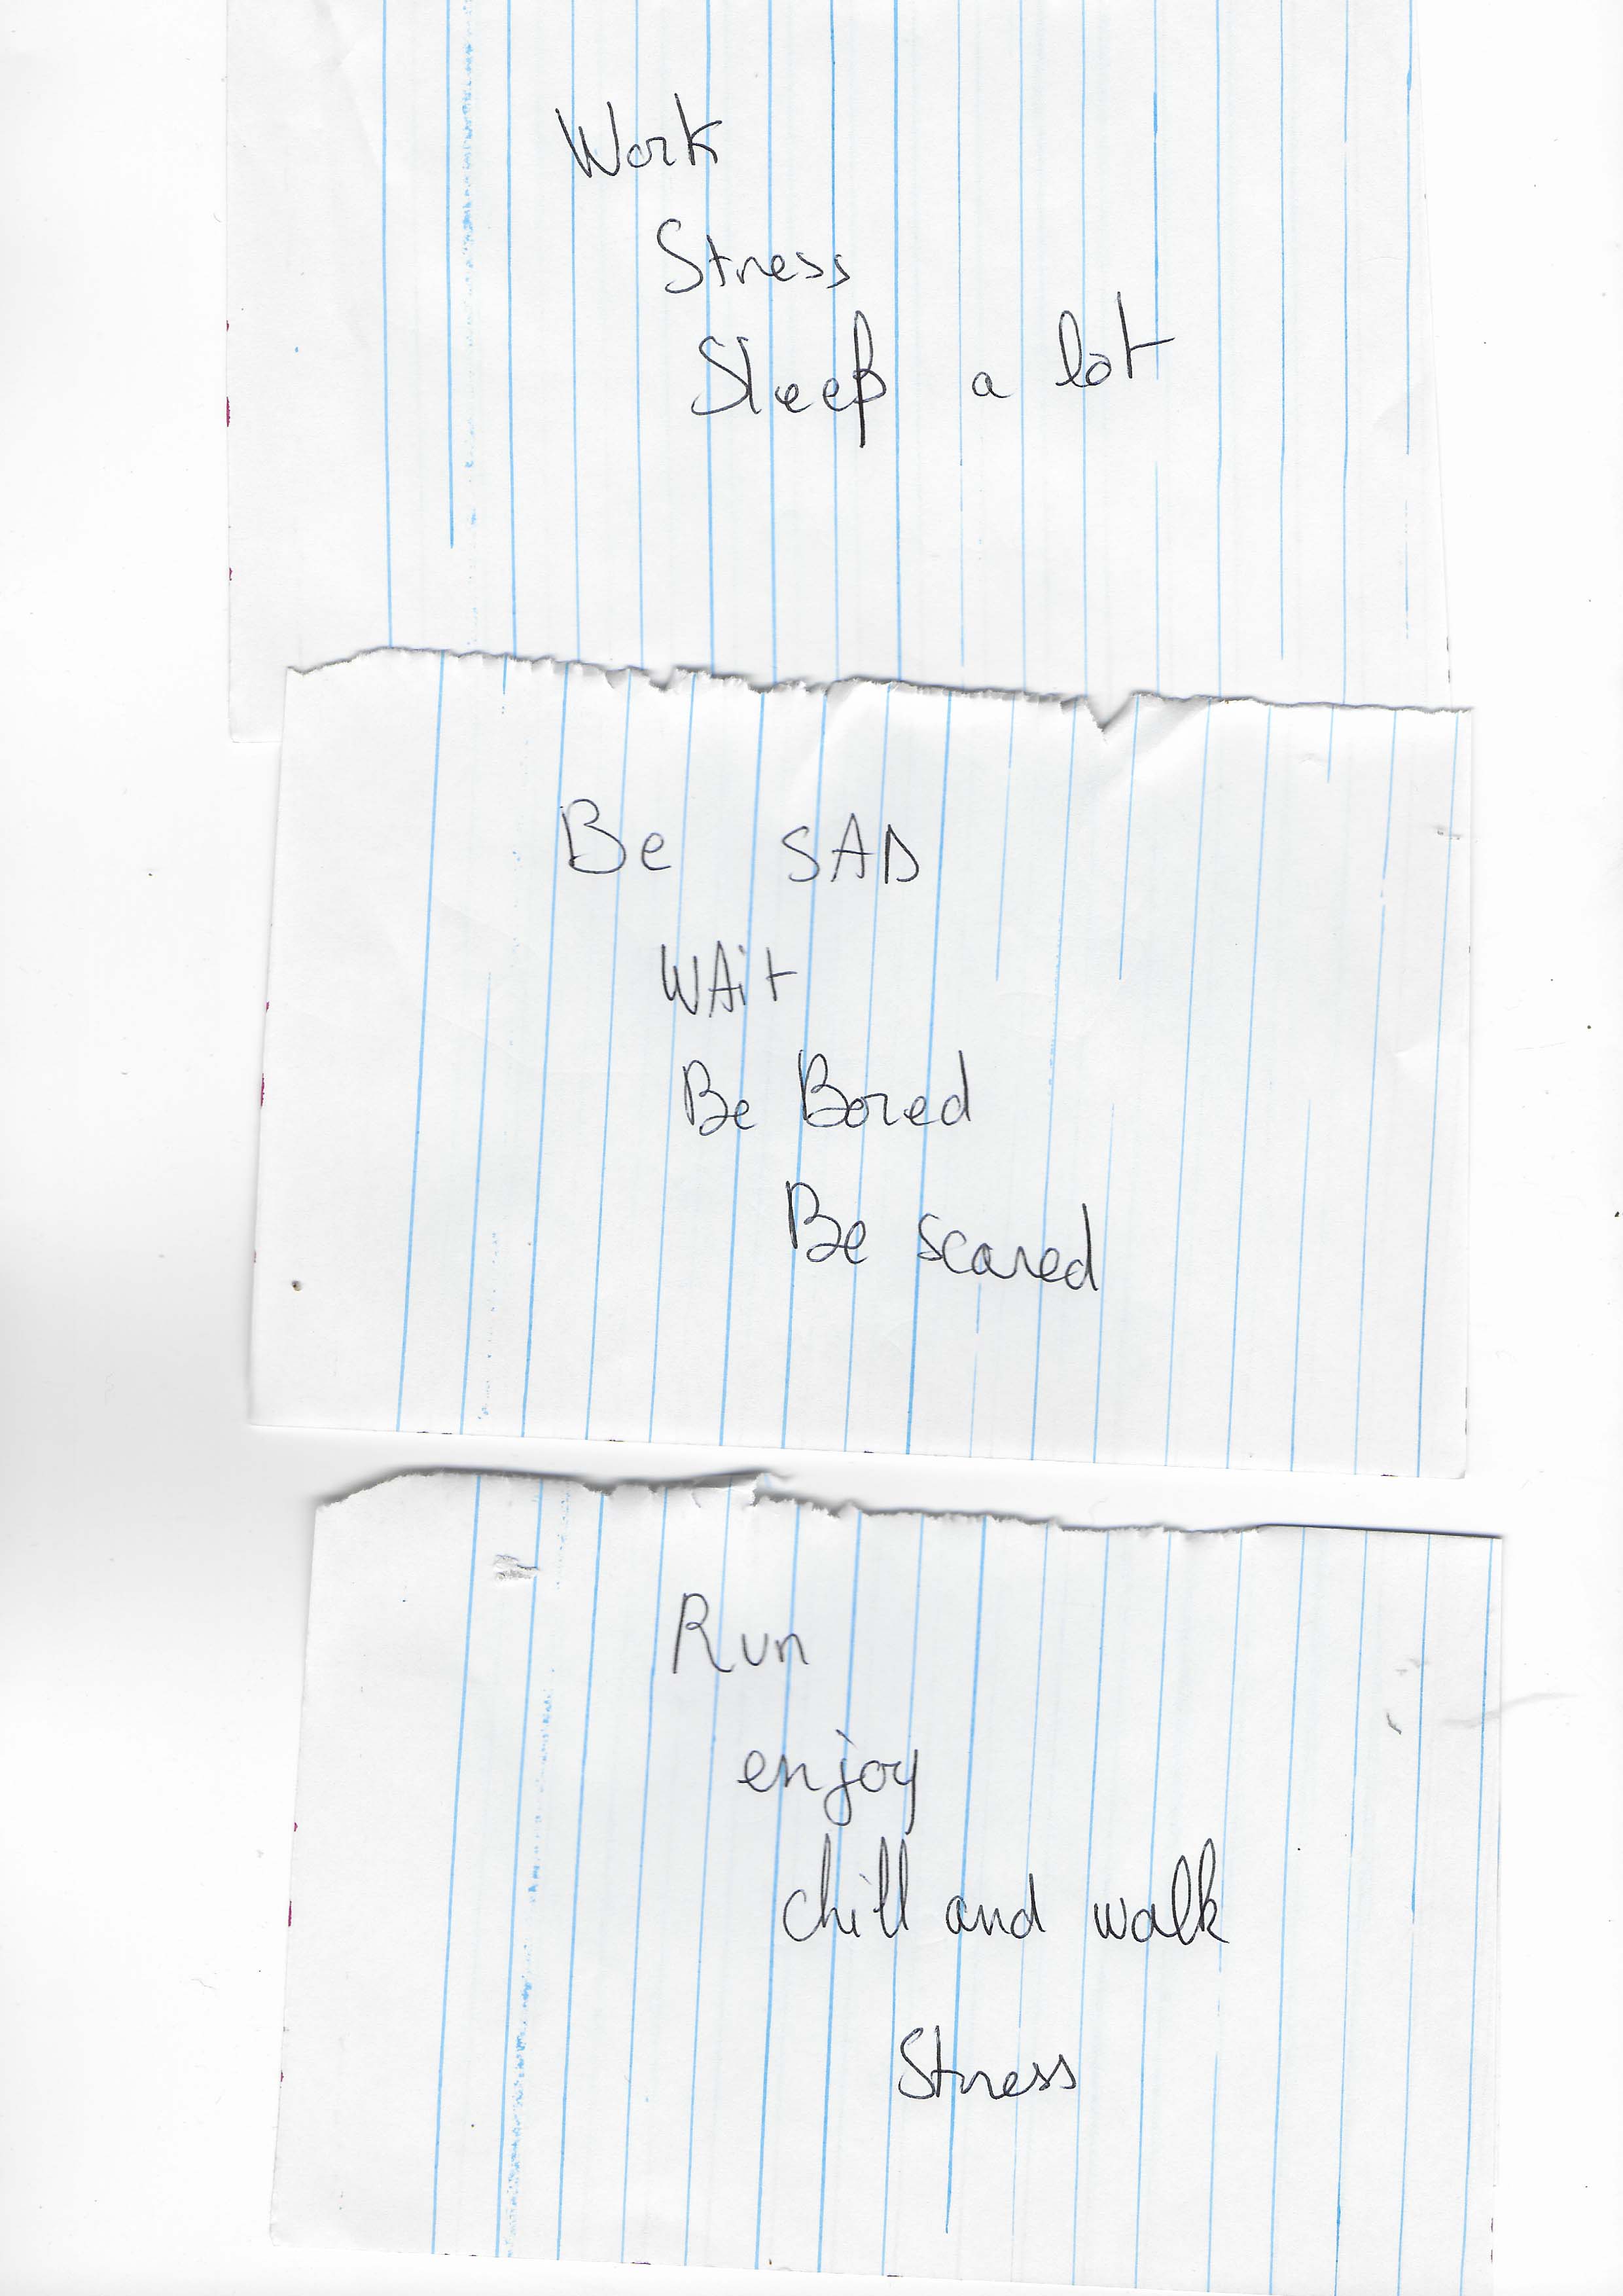 Work
Stress
Sleep a lot
Be SAD
WAit
Be Bored
Be scared
Run
enjoy
chill and walk
Stress